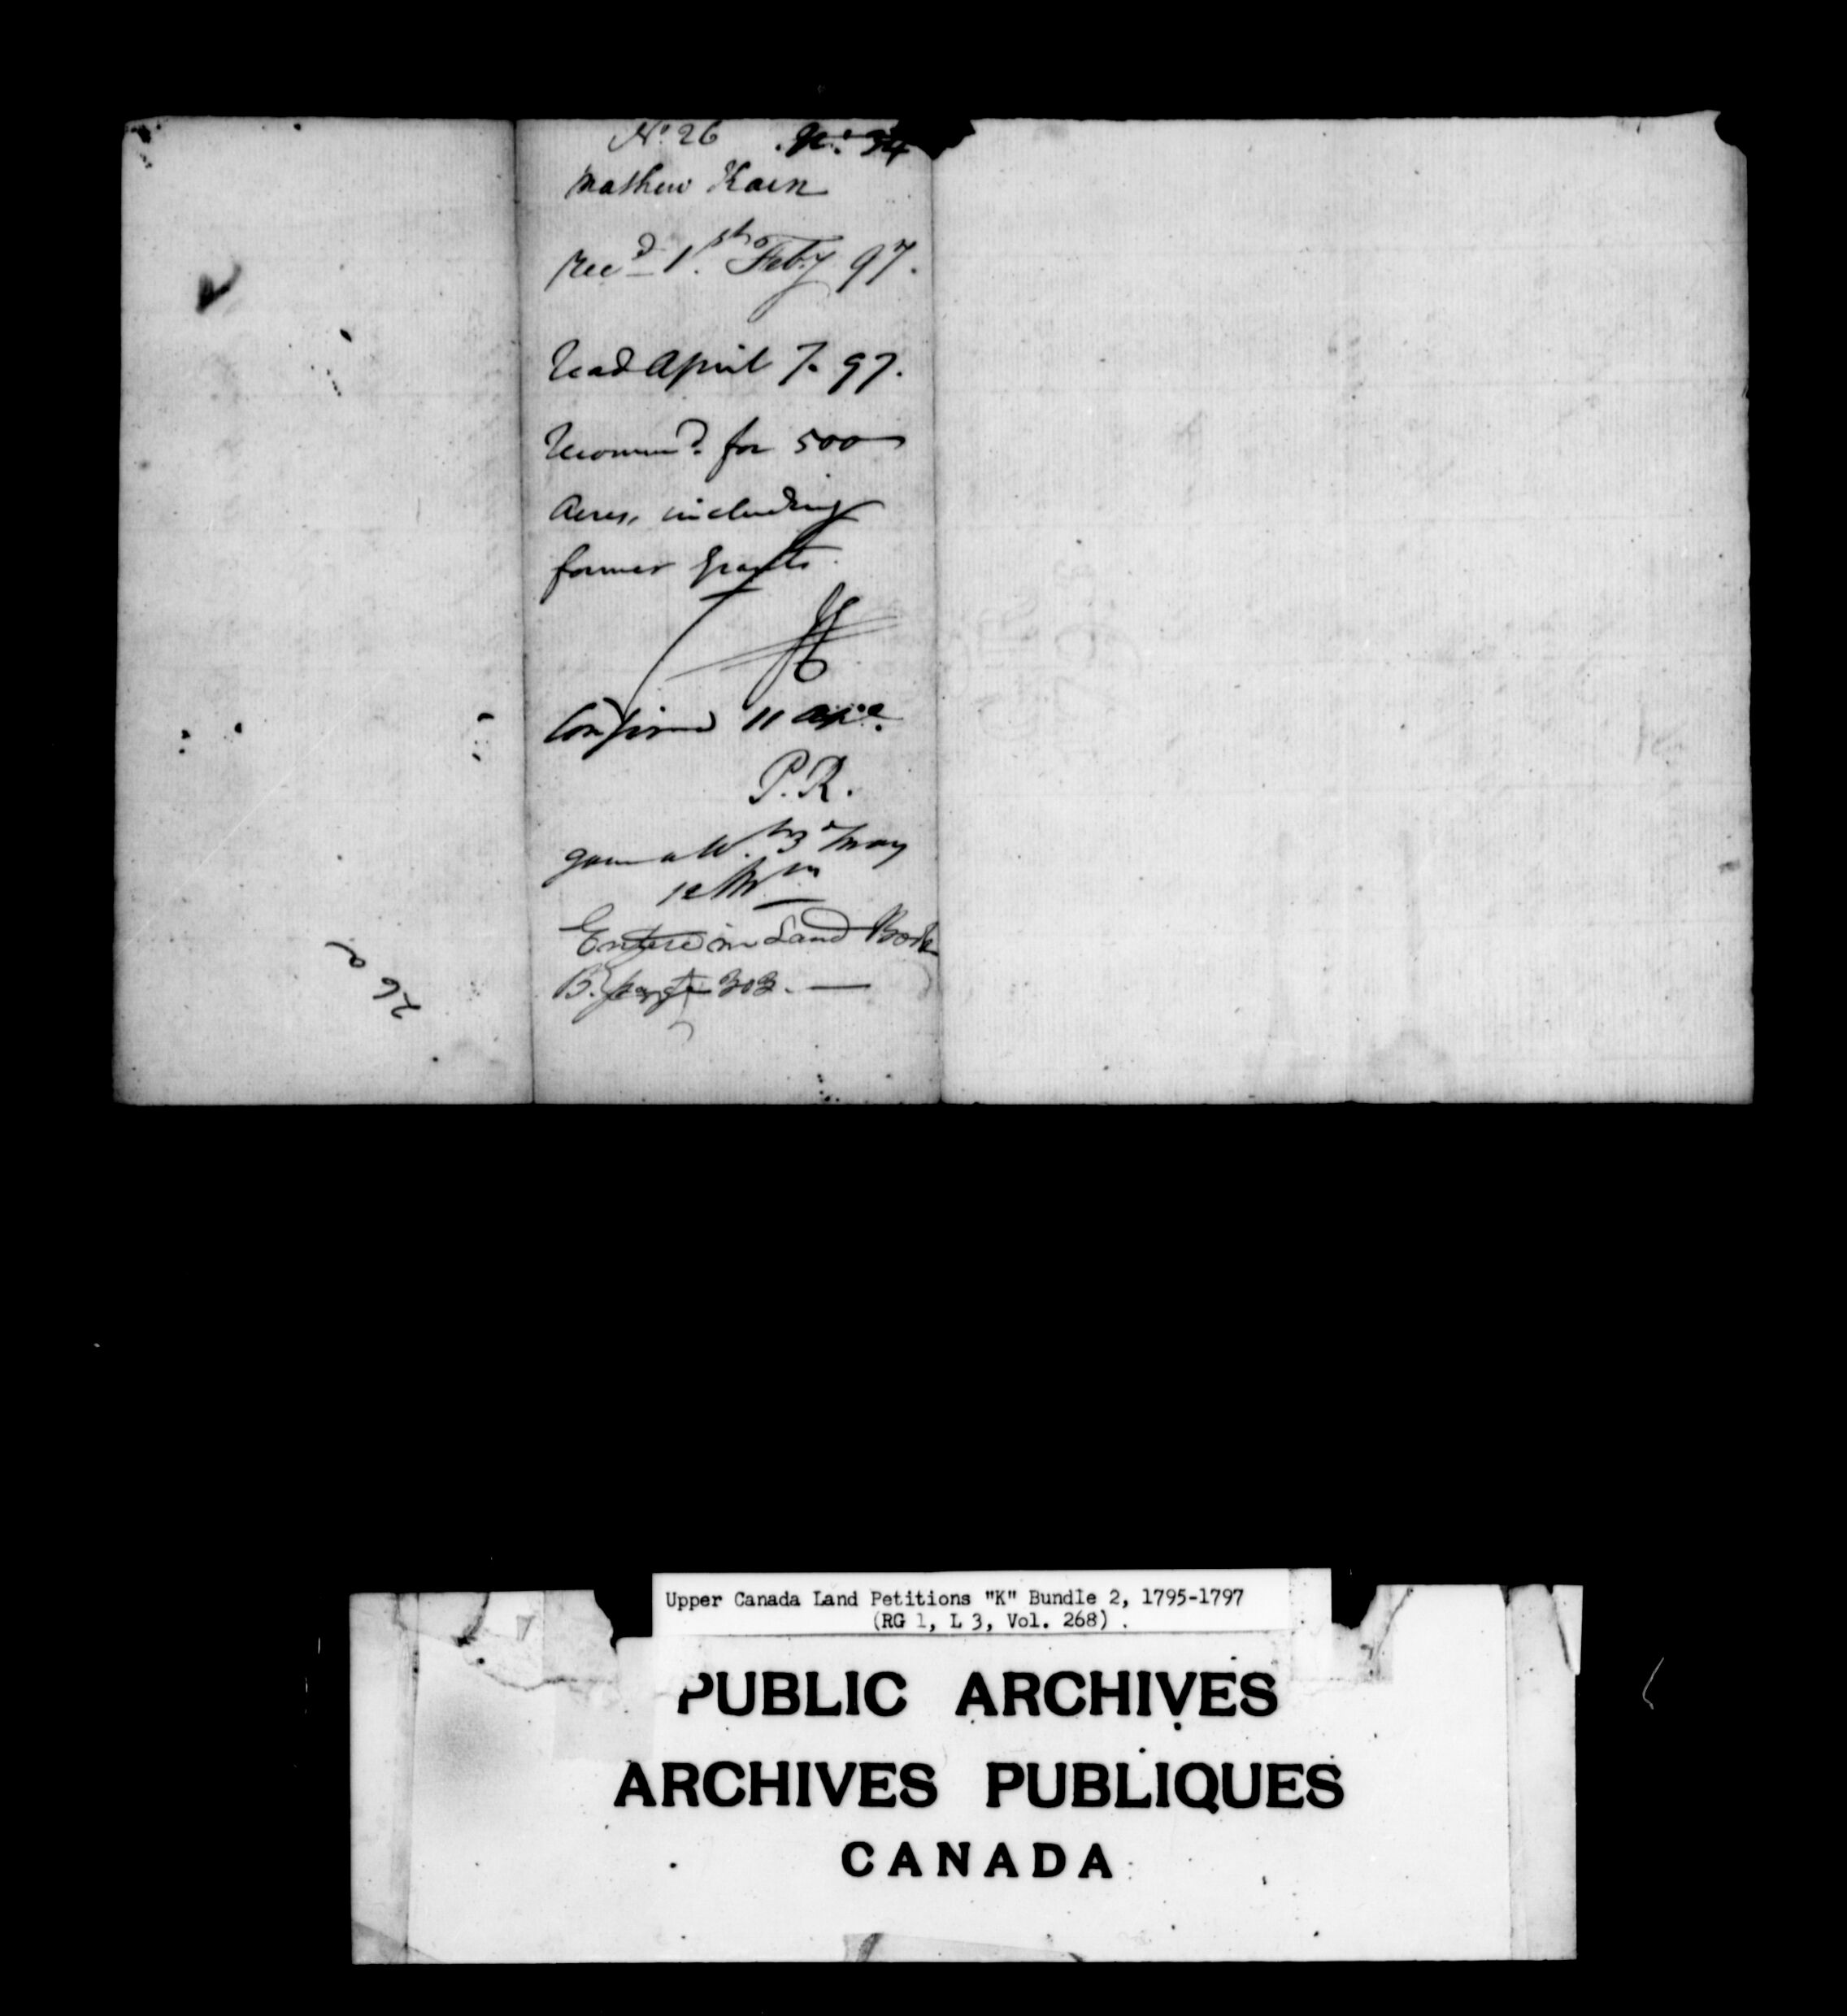 No. 26 No. 34
Mathew Kain
Recd 1st Feby 97.
Read April 7. 97.
Recommd. for 500
Acres, including
former Grants.
Confirmed 11 Apl.
P.R.
3d May
Entered in Land Book
B. page 303.
26 a
Upper Canada Land Petitions "K" Bundle 2, 1795-1797
(RG 1, L 3, Vol. 268) .
PUBLIC ARCHIVES
ARCHIVES PUBLIQUES
CANADA